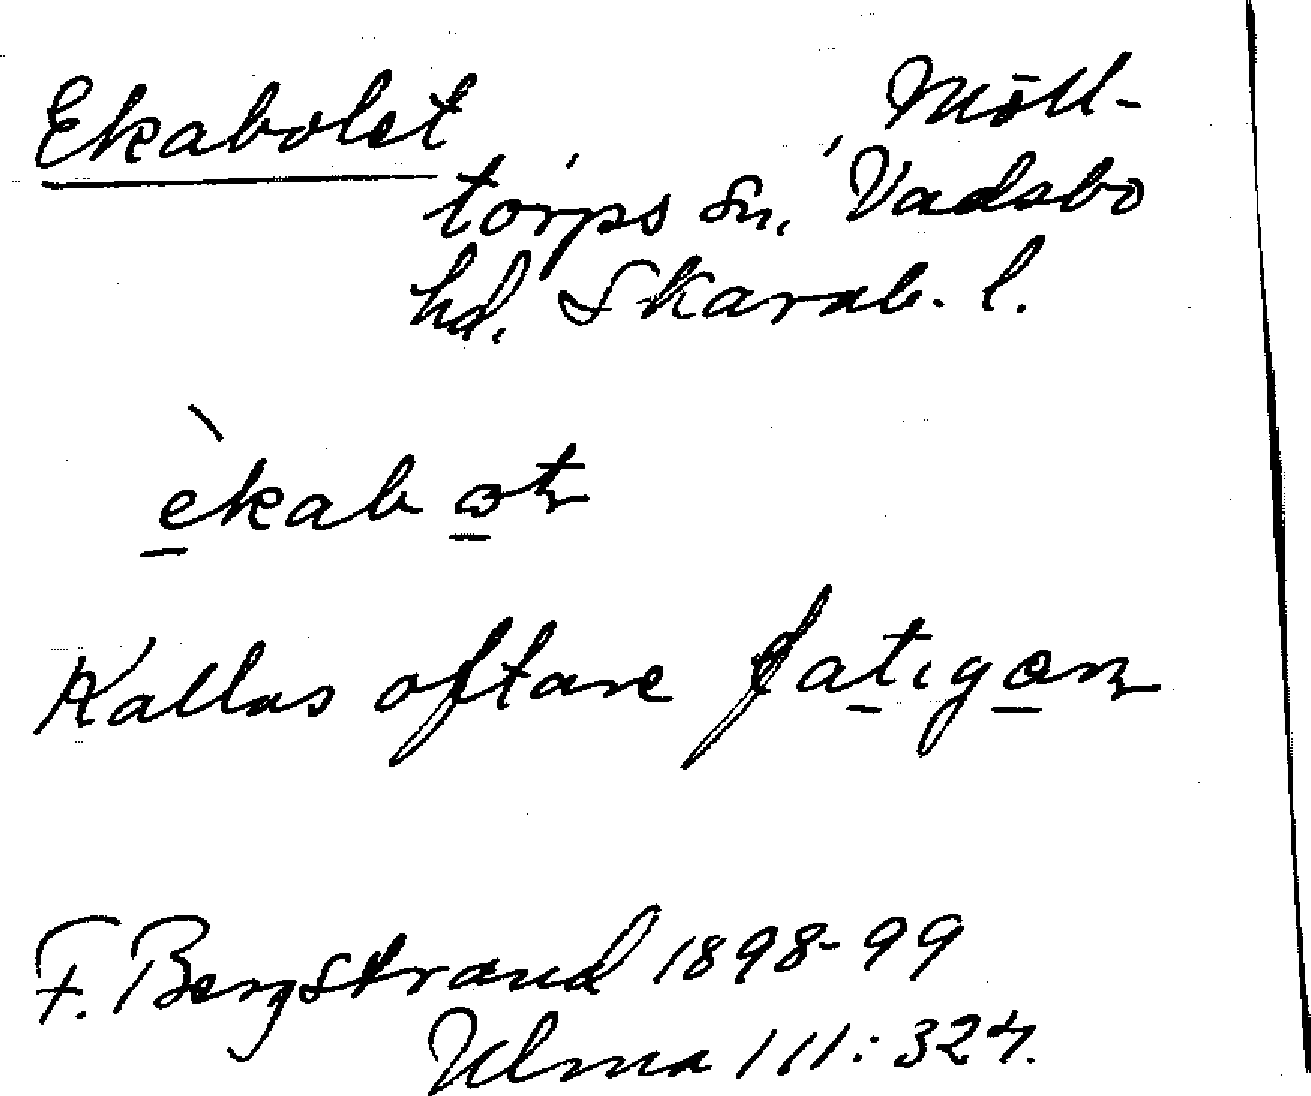 Ekabolet Möll-
torps sn, Vadsbo
hd, Skarab. l.
èkab
Kallas oftare
F. Bergstrand 1898-99
Ulma 111:324.